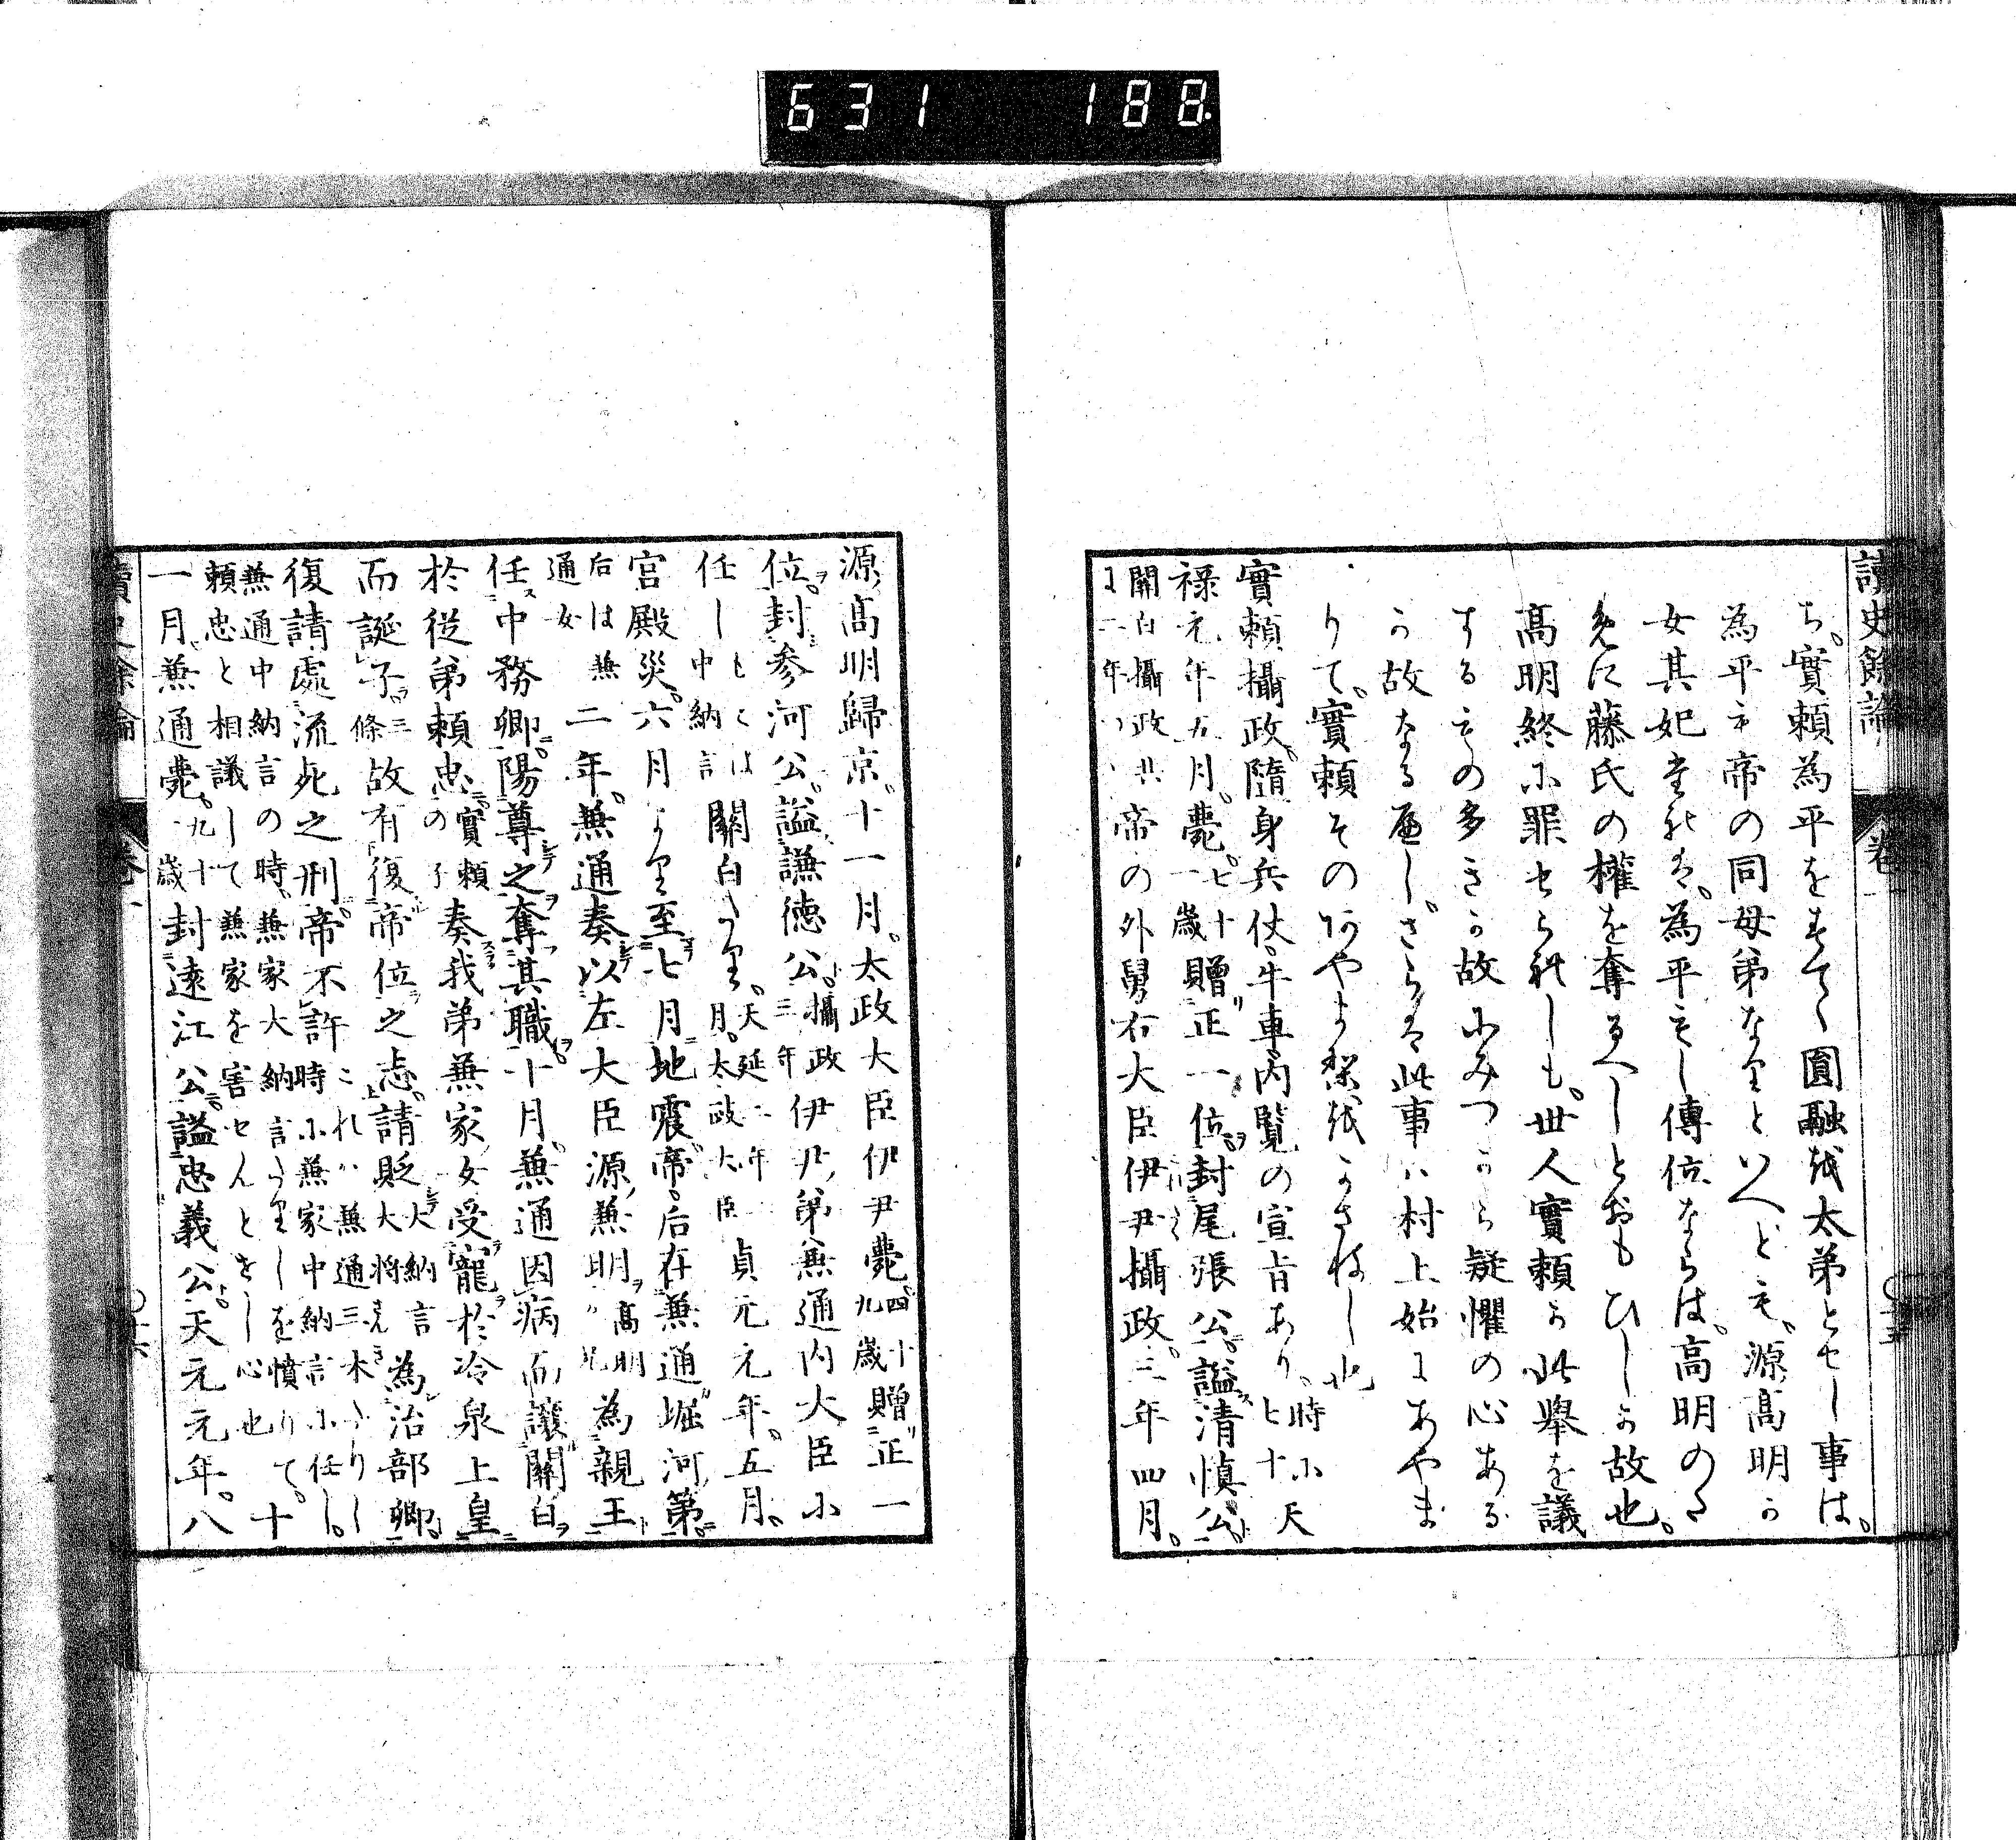 631 188
讀史餘論 卷一
ち實賴為平をすてゝ圓融を太弟とせし事は。
為平も帝の同母弟なりといへども。源高明か
女其妃たれは。為平もし傳位ならは。高明のた
めに藤氏の權を奪るへしとおもひしか故也。
高明終に罪せられしも。世人實賴か此擧を議
するものの多きか故にみつから疑懼の心ある
か故なるへし。さらは此事は村上始にあやま
りて。實賴そのあやまりをかさねし也
實賴攝政。隨身兵仗。牛車。內覽の宣旨あり。時に七十 天
祿元年五月。薨。七十一歲 贈正一位。封尾張公。謚清慎公。
關白攝政 二年 帝の外舅右大臣伊尹攝政。三年四月。
源高明歸京。十一月。太政大臣伊尹薨。四十九歲 贈正一
位。封參河公。謚謙德公。攝政三年 伊尹弟兼通內大臣に
任し もとは中納言 關白たり。天延二年二月。太政大臣 貞元元年。五月。
宮殿災。六月より至七月地震。帝后在兼通堀河第。
后は兼通女 二年。兼通奏以左大臣源兼明。高明か兄 為親王
任中務卿。陽尊之奪其職。十月。兼通因病而讓關白
於從弟賴忠。實賴の子 奏我弟兼家女受寵於冷泉上皇
而誕子 三條 故有復帝位之志。請貶大納言大將 為治部卿。
復請處流死之刑。帝不許 これは兼通三木たりし時に兼家中納言に任し。
兼通中納言の時。兼家大納言たりしを憤りて。賴忠と相議して兼家を害せんとせし心也 十
一月。兼通薨。 封遠江公。謚忠義公。天元元年。八